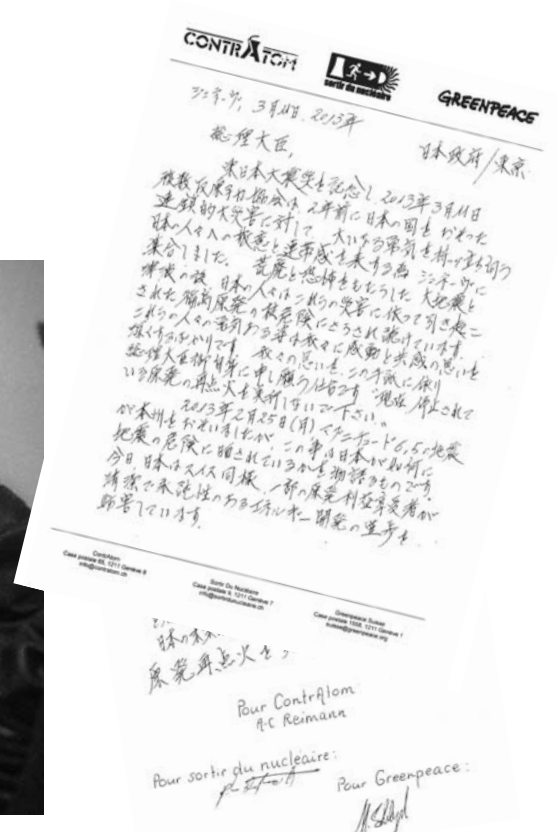 CONTRATOM
sortir du nucléaire
GREENPEACE
ジュネーヴ, 3月11日, 2013年
総理大臣,
日本政府/東京
東日本大震災を記念し、2013年3月11日
複数反原子力協会は、2年前に日本の国をおそった
連鎖的大災害に対して、大いなる勇気を持って立ち向う
日本の人々への敬意と連帯感を表する為 ジュネーヴに
集合しました。荒廃と恐怖をもたらした大地震と
津波の後、日本の人々はこれらの災害に依って引き起こ
された福島原発の被危険にさらされ続けています。
これらの人々の勇気ある姿は我々に感動と共感の思いを
強くするばかりです。我々の思いを、この手紙に依り
総理大臣御自身に申し願う です “現在停止されて
いる原発の再点火を実行しないで下さい。”
2013年2月25日(月)マグニチュード6,5の地震
が本州をおそいましたが、この事は日本が如何に
地震の危険に晒されているかを物語るものです。
今日、日本はスイス同様、一部の原発利益享受者が
清潔で永続性のあるエネルギー開発の進歩を
妨害しています。
ContrAtom
Case postale 65, 1211 Genève 8
info@contratom.ch
Sortir Du Nucléaire
Case postale 9, 1211 Genève 7
info@sortirdunucleaire.ch
Greenpeace Suisse
Case postale 1558, 1211 Genève 1
suisse@greenpeace.org
日本の
原発再点火を
Pour ContrAtom
A-C Reimann
Pour sortir du nucléaire:
Pour Greenpeace: